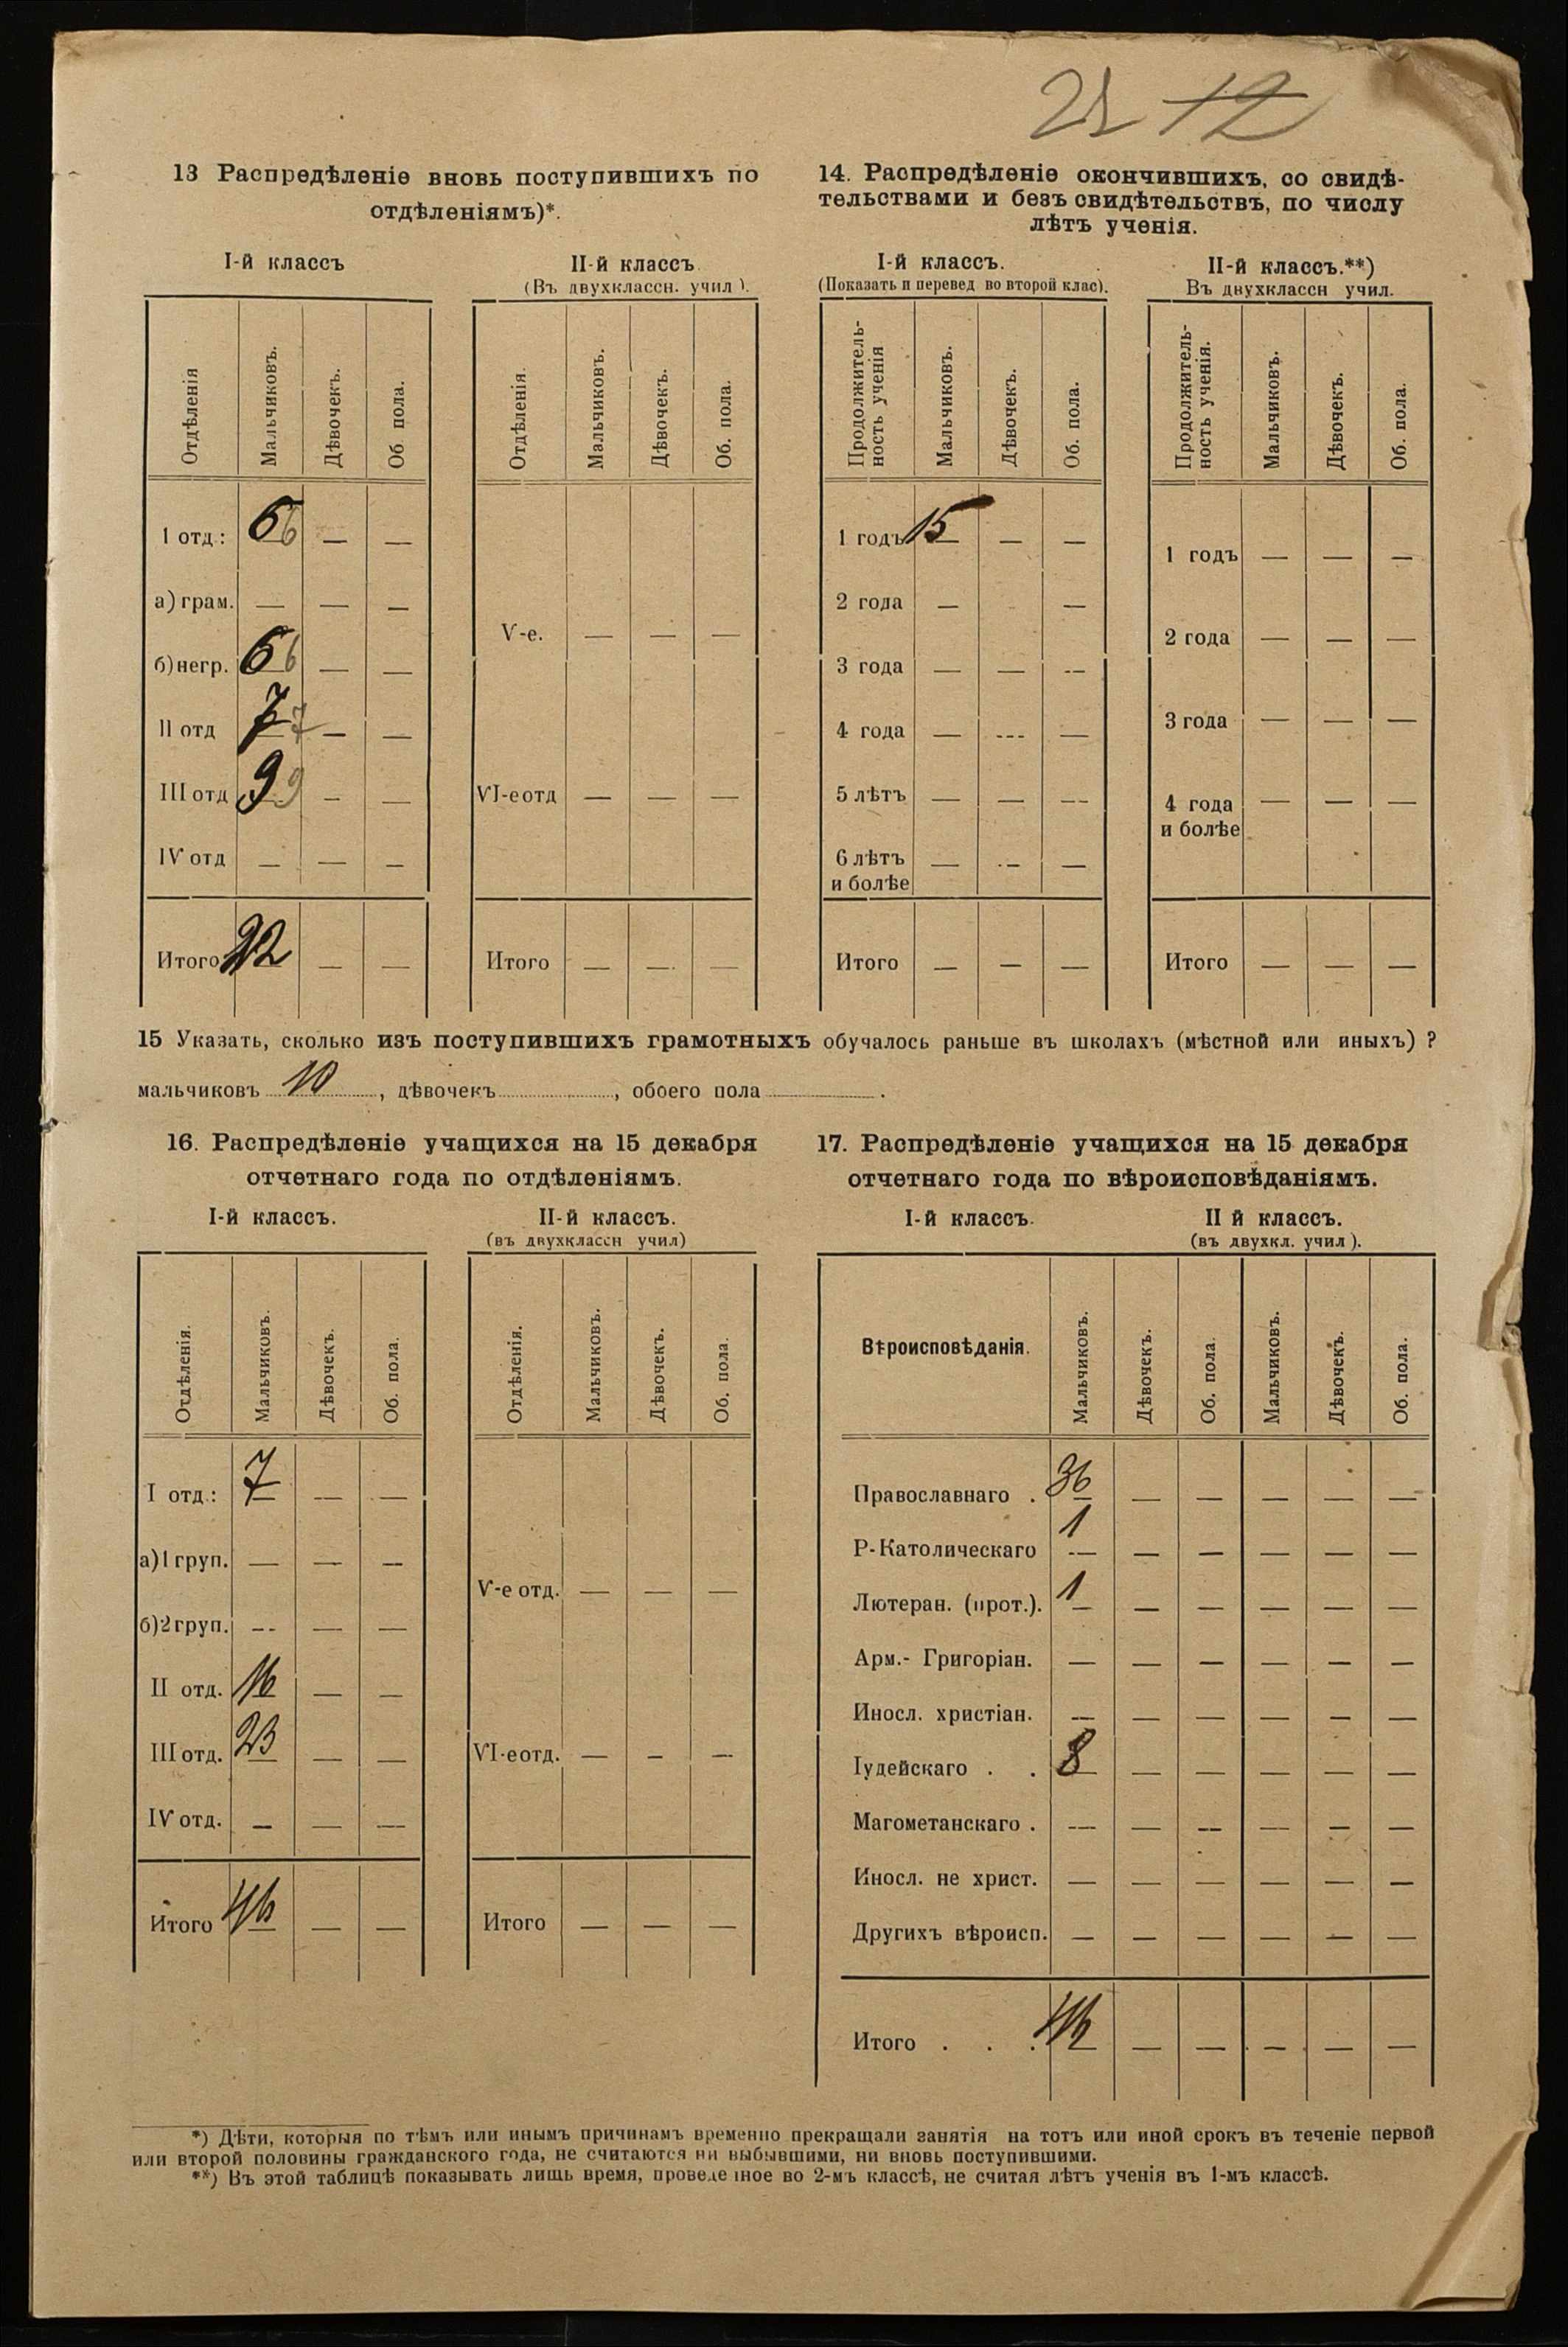 22 12
13 Распредѣленіе вновь поступившихъ по
отдѣленіямъ)*.
I-й классъ
II-й классъ
(Въ двухклассн. учил).
Отдѣленія Мальчиковъ. Дѣвочекъ. Об пола.
Отдѣленія. Мальчиковъ. Дѣвочекъ. Об. пола.
1 отд: 6 6 — —
а) грам. — — —
б) негр. 6 6 — —
II отд 7 7 — —
III отд 9 9 — —
IV отд — — —
Итого 22 — —
V-е. — — —
VI-е отд — — —
Итого — — —
14. Распредѣленіе окончившихъ, со свидѣ-
тельствами и безъ свидѣтельствъ, по числу
лѣтъ ученія.
I-й классъ.
(Показать и перевед во второй клас).
II-й классъ.**)
Въ двухклассн учил.
Продолжитель-
ность ученія Мальчиковъ. Дѣвочекъ. Об. пола.
Продолжитель-
ность ученія. Мальчиковъ. Дѣвочекъ. Об. пола.
1 годъ 15 — —
2 года — —
3 года — — —
4 года — — —
5 лѣтъ — — —
6 лѣтъ — — —
и болѣе
Итого — — —
1 годъ — — —
2 года — — —
3 года — — —
4 года — — —
и болѣе
Итого — — —
15 Указать, сколько изъ поступившихъ грамотныхъ обучалось раньше въ школахъ (мѣстной или иныхъ) ?
мальчиковъ 10, дѣвочекъ, обоего пола .
16. Распредѣленіе учащихся на 15 декабря
отчетнаго года по отдѣленіямъ.
I-й классъ.
II-й классъ.
(въ двухклассн учил)
Отдѣленія. Мальчиковъ. Дѣвочекъ. Об. пола.
Отдѣленія. Мальчиковъ. Дѣвочекъ. Об. пола.
I отд.: 7 — —
а) 1 груп. — — —
б) 2 груп. — — —
II отд. 16 — —
III отд. 23 — —
IV отд. — — —
Итого 46 — —
V-е отд. — — —
VI-е отд. — — —
Итого — — —
17. Распредѣленіе учащихся на 15 декабря
отчетнаго года по вѣроисповѣданіямъ.
I-й классъ.
II й классъ.
(въ двухкл. учил ).
Вѣроисповѣданія. Мальчиковъ. Дѣвочекъ. Об. пола. Мальчиковъ. Дѣвочекъ. Об. пола.
Православнаго . 36 — — — — —
Р-Католическаго 1 — — — — —
Лютеран. (прот.). 1 — — — — —
Арм.- Григоріан. — — — — — —
Иносл. христіан. — — — — — —
Іудейскаго . . 8 — — — — —
Магометанскаго . — — — — — —
Иносл. не христ. — — — — — —
Другихъ вѣроисп. — — — — — —
Итого . . . 46 — — — — —
*) Дѣти, которыя по тѣмъ или инымъ причинамъ временно прекращали занятія на тотъ или иной срокъ въ теченіе первой
или второй половины гражданского года, не считаются ни выбывшими, ни вновь поступившими.
**) Въ этой таблицѣ показывать лишь время, проведенное во 2-мъ классѣ, не считая лѣтъ ученія въ 1-мъ классѣ.